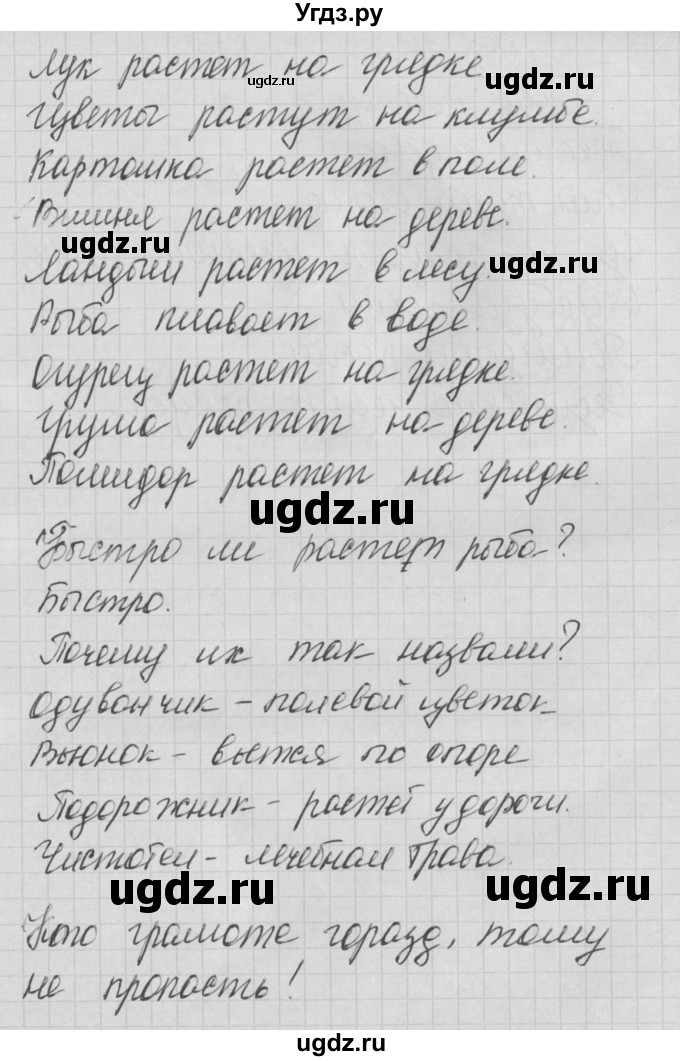 Угдз.ру
Лук растет на грядке
Цветы растут на клумбе.
Картошка растет в поле.
Вишня растет на дереве.
Ландыш растет в лесу.
Рыба плавает в воде.
Огурец растет на грядке.
Груша растет на дереве.
Помидор растет на грядке.
Быстро ли растет рыба?
Быстро.
Почему их так назвали?
Одуванчик - полевой цветок
Вьюнок - вьется по опоре
Подорожник - растет у дороги.
Чистотел - лечебная трава.
Кто грамоте горазд, тому
не пропасть!
ugdz.ru
ugdz.ru
ugdz.ru
ugdz.ru
ugdz.ru
ugdz.ru
ugdz.ru
ugdz.ru
ugdz.ru
ugdz.ru
ugdz.ru